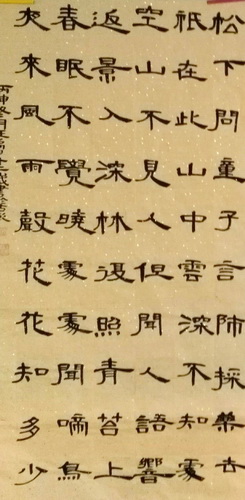 松下問童子言師採藥去
祇在此山中雲深不知處
空山不見人但聞人語響
返景入深林復照青苔上
春眠不覺曉處處聞啼鳥
夜來風雨聲花花知多少
丙申冬月